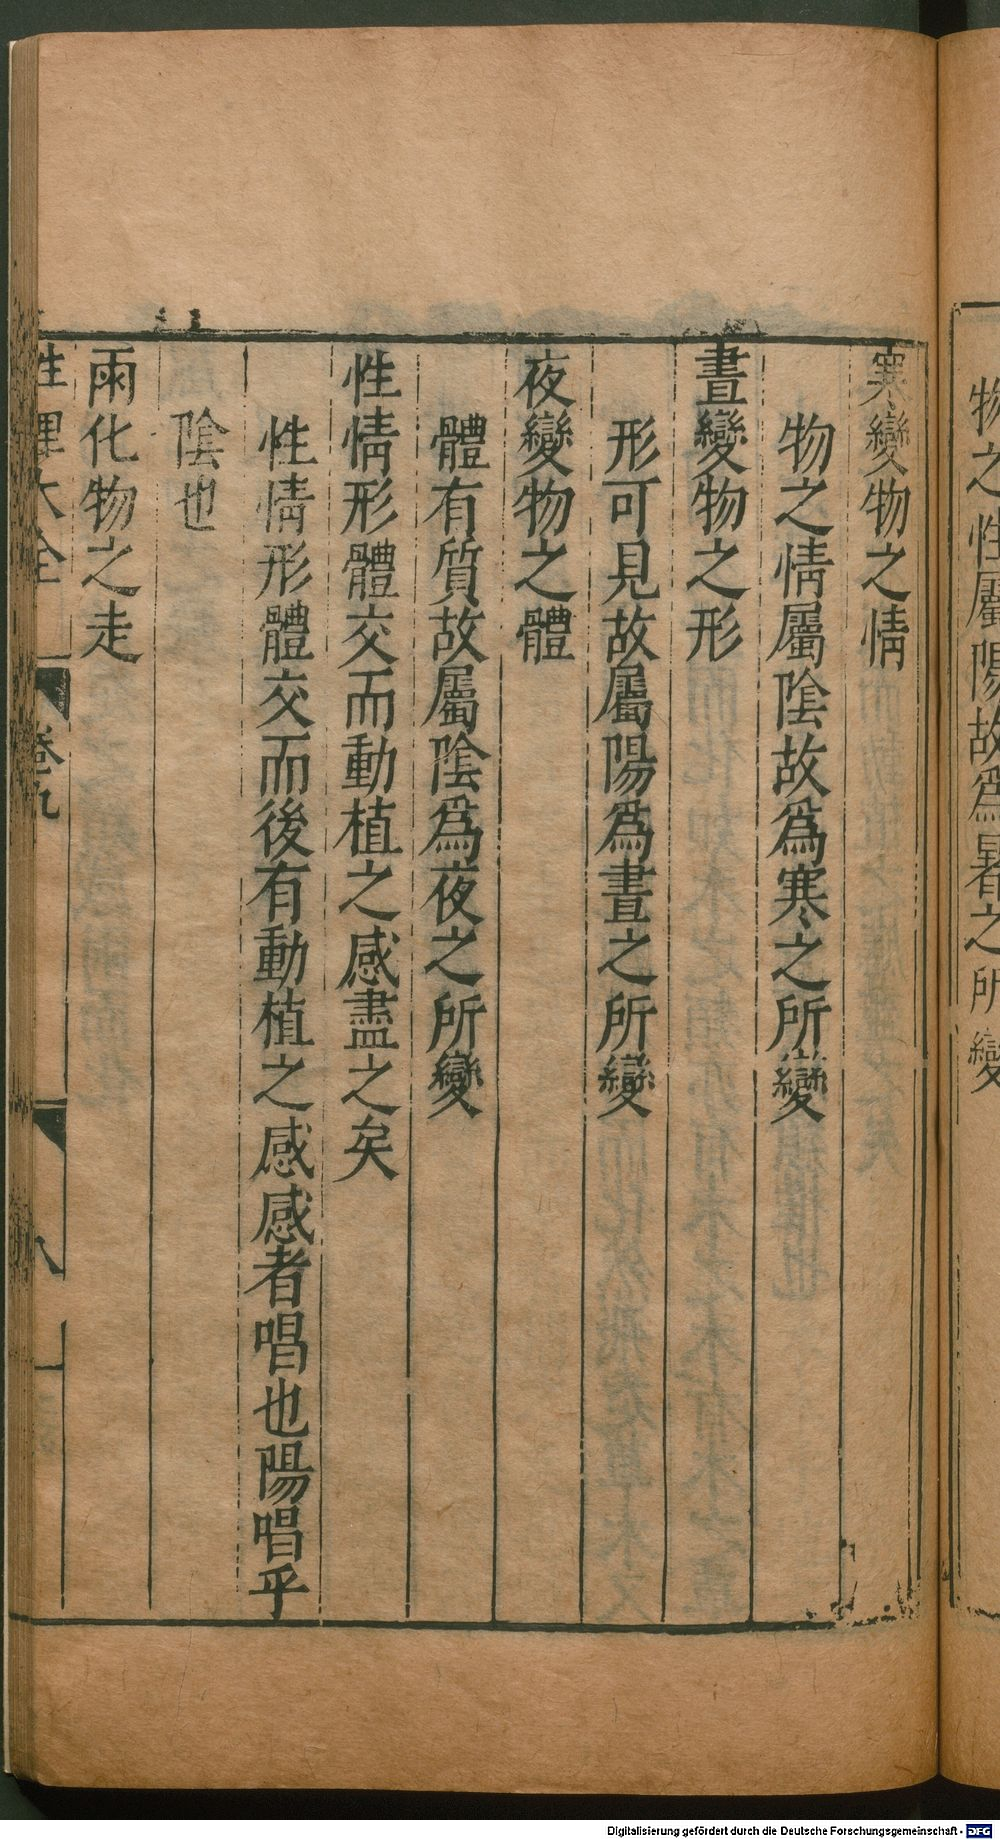 物之性屬陽故爲暑之所變
寒變物之情
物之情屬陰故爲寒之所變
晝變物之形
形可見故屬陽爲晝之所變
夜變物之體
體有質故屬陰爲夜之所變
性情形體交而動植之感盡之矣
性情形體交而後有動植之感感者唱也陽唱乎
陰也
雨化物之走
性理大全 卷九 八
Digitalisierung gefördert durch die Deutsche Forschungsgemeinschaft - DFG